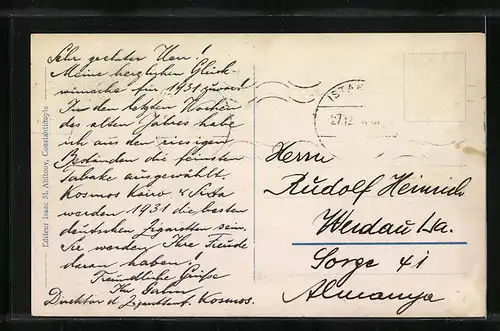 Sehr geehrter Herr!
Meine herzlichen Glück-
wünsche für 1931 zuvor!
In den letzten Wochen
des alten Jahres habe
ich aus den riesigen
Beständen die feinsten
Tabake ausgewählt.
Kosmos Kairo &
werden 1931 die besten
deutschen Zigaretten sein.
Sie werden Ihre Freude
daran haben!
Freundliche Grüße
Ihr
Direktor d. Zigarettenf. Kosmos.
Editeur Isaac M. Ahitouv, Constantinople
27.12
Herrn
Rudolf Heinrich
Werdau i/Sa.
Sorge 41
Almanya